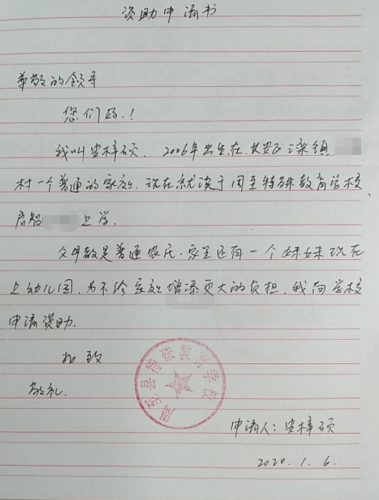 资助申请书
尊敬的领导
您们好！
我叫安梓硕、2006年出生在 镇
村一个普通的家庭.现在就读于周至特殊教育学校.
启智 上学.
父母都是普通农民.家里还有一个妹妹现在
上幼儿园.为不给家庭增添更大的负担.我向学校
申请资助.
此致
敬礼.
周至县特殊教育学校
申请人：安梓硕
2020.1.6.